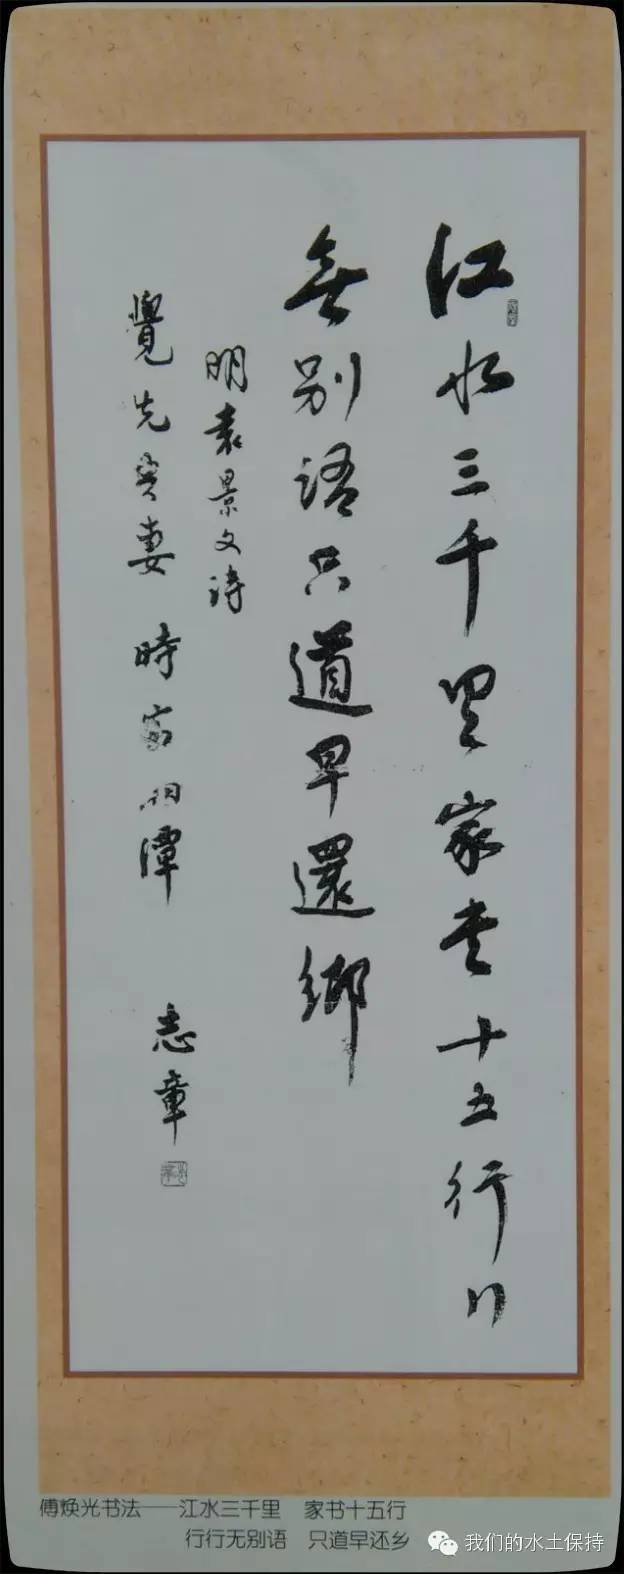 江水三千里家书十五行行
無别語只道早還鄉
明袁景文詩
覺先賢妻 時客湘潭
志章
傅焕光书法——江水三千里 家书十五行
行行无别语 只道早还乡
我们的水土保持